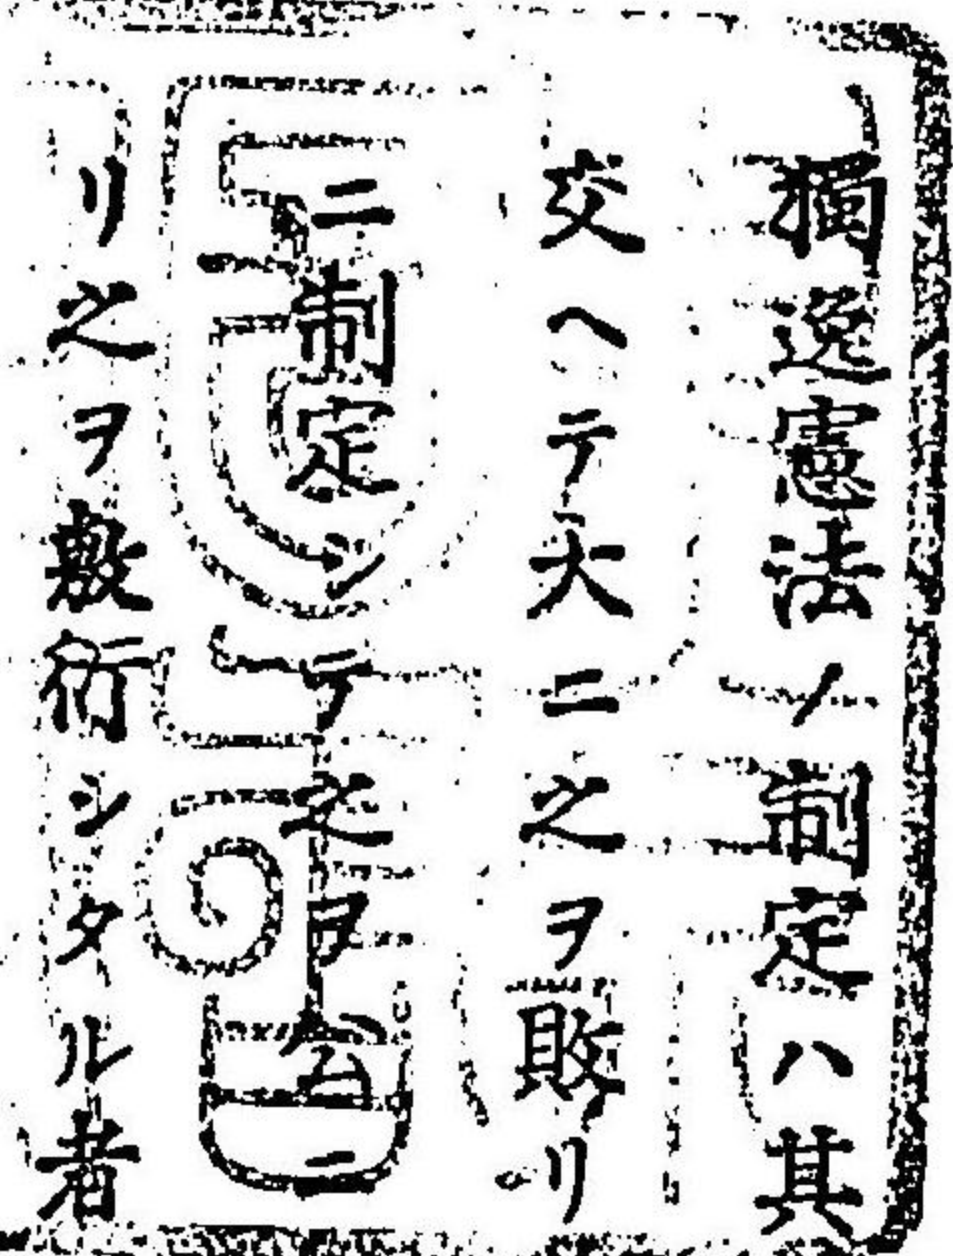 獨逸憲法ノ制定ハ其
交ヘテ大ニ之ヲ敗リ
ニ制定シテ之ヲ公ニ
リ之ヲ敷衍シタル者